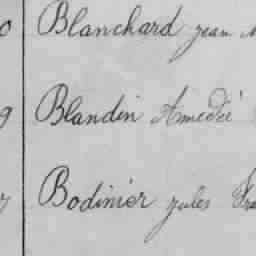 0 Blanchard jean
9 Blandin Amedée
Bodinier jules